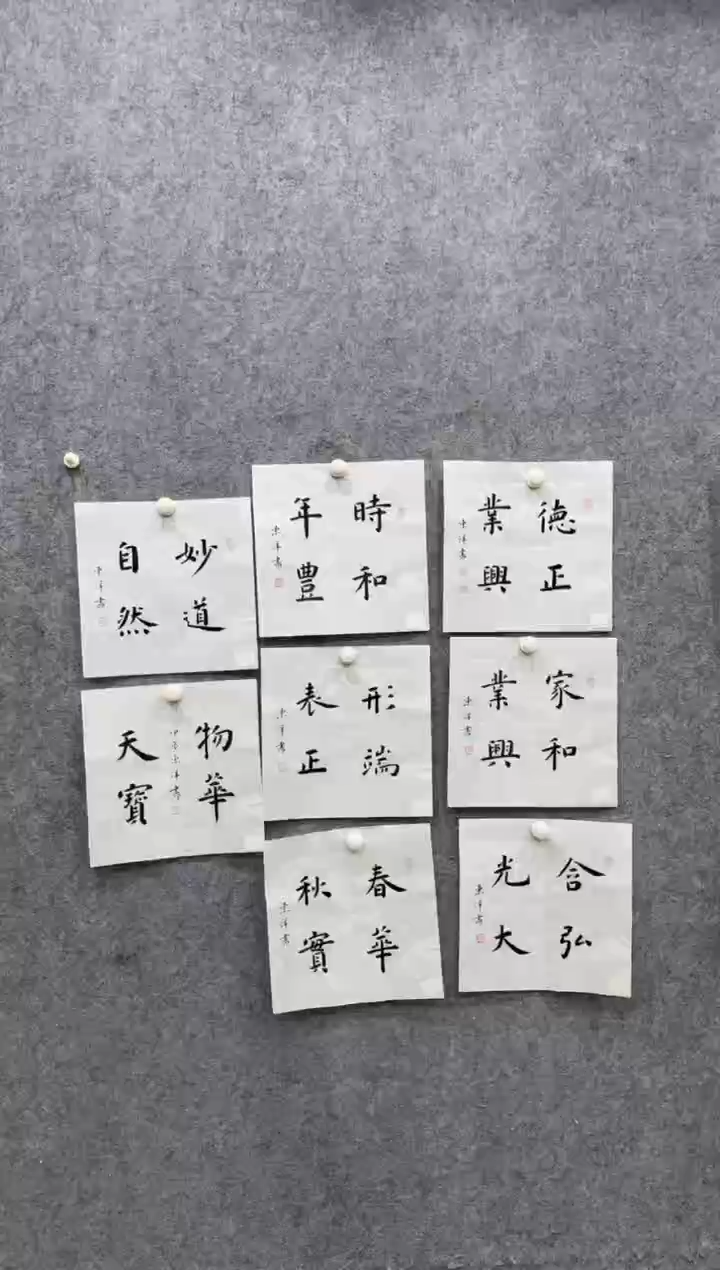 德正
業興
東洋書
時和
年豐
東洋書
妙道
自然
東洋書
家和
業興
東洋書
形端
表正
東洋書
物華
天寶
東洋書
含弘
光大
東洋書
春華
秋實
東洋書